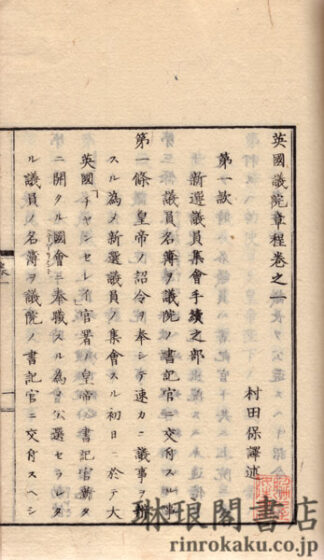 英國議院章程卷之一
村田保譯述
第一款
新選議員集會手續之部
議員名簿ヲ議院ノ書記官ニ交付スル事
第一條皇帝ノ詔令ヲ奉シテ速カニ議事ヲ辨
スル爲メ新選議員ノ集會スル初日ニ於テ大
英國チヤンセレイ官署ノ皇帝ノ書記官新タ
ニ開クル國會ニ奉職スル為メ公選セラレタ
ル議員ノ名簿ヲ議院ノ書記官ニ交付スヘシ
琳琅閣書店
rinrokaku.co.jp